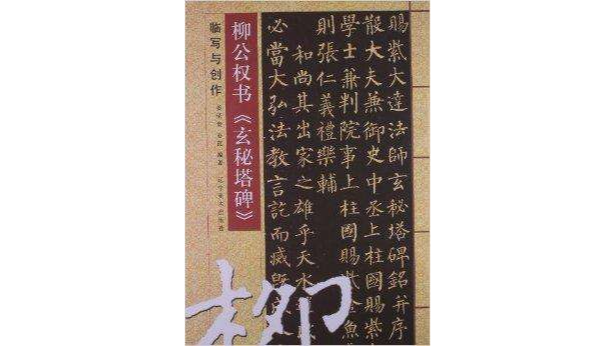 賜紫大達法師玄秘塔碑銘并序
散大夫兼御史中丞上柱國賜紫
學士兼判院事上柱國賜紫金魚
則張仁義禮樂輔
和尚其出家之雄乎天水
必當大弘法教言訖而滅既
柳公权书《玄秘塔碑》
临写与创作
编著
柳